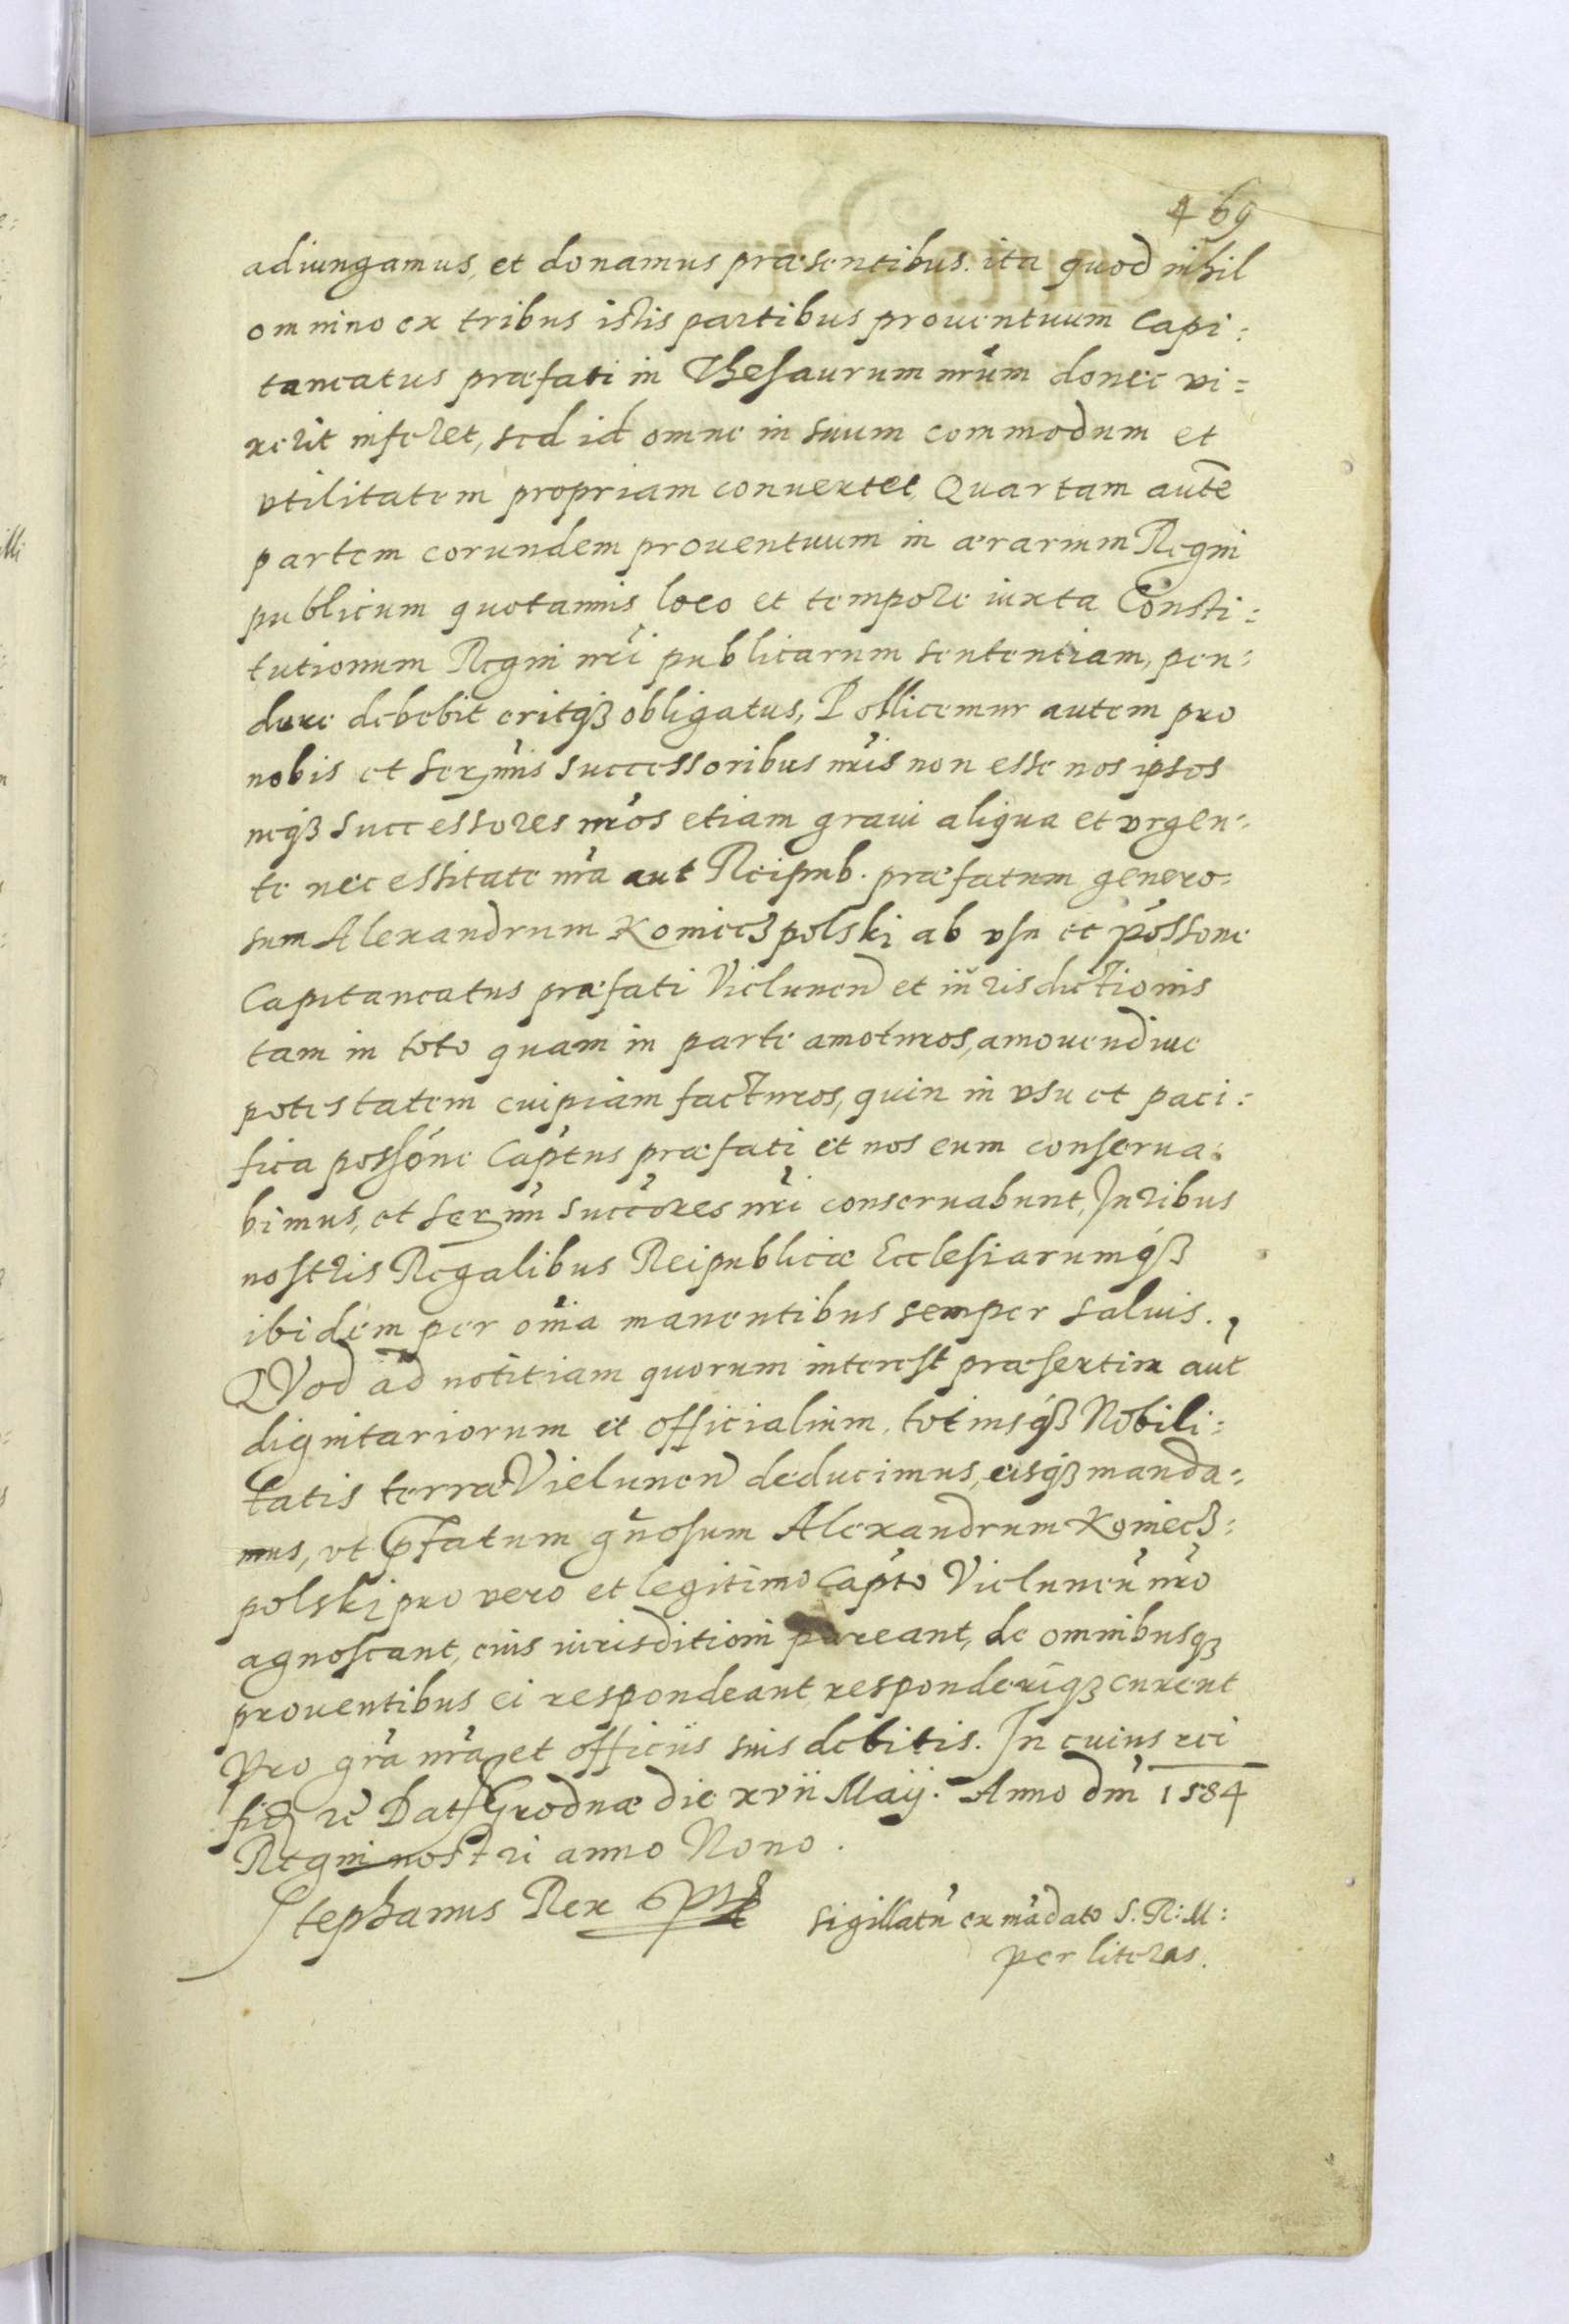 469
adiungamus, et donamus præsentibus. ita quod nihil
omnino ex tribus istis partibus prouentuum Capi:
taneatus præfati in Thesaurum nrum donec vi=
xerit inferet, sed id omne in suum commodum et
vtilitatem propriam conuertet, Quartam autē
partem eorundem prouentuum in ærarium Regni
publicum quotannis loco et tempore iuxta Consti:
tutionum Regni nri publicarum sententiam, pen:
dere debebit eritqȝ obligatus, Pollicemur autem pro
nobis et Serᵐⁱˢ successoribus nris non esse nos ipsos
neqȝ successores nros etiam graui aliqua et vrgen:
te necessitate nra aut Reipub. præfatum genero:
sum Alexandrum Koniecȝpolski ab vsu et possone
Capitaneatus præfati Vielunen et iurisdictionis
tam in toto quam in parte amoturos, amouendiue
potestatem cuipiam facturos, quin in vsu et paci:
fica possone Captus præfati et nos eum conserua:
bimus, et Serᵐⁱ succores nri conseruabunt, Iuribus
nostris Regalibus Reipublicæ Ecclesiarumqȝ
ibidem per omia manentibus semper saluis.
QVod ad notitiam quorum interest præsertim aut
dignitariorum et officialium, totiusqȝ Nobili:
tatis terræ Vielunen deducimus, eisqȝ manda:
mus, vt ꝑfatum gnosum Alexandrum Koniecȝ:
polski pro vero et legitimo Capto Vielunen nro
agnoscant, eius iurisditioni pareant, de omnibusqȝ
prouentibus ei respondeant, responderiqȝ curent
Pro gra nra et officiis suis debitis. In cuius rei
fid re Dat Grodnæ die xvii Maij. Anno dm 1584
Regni nostri anno Nono.
Stephanus Rex
sigillatu ex madato S. R: M:
per literas.